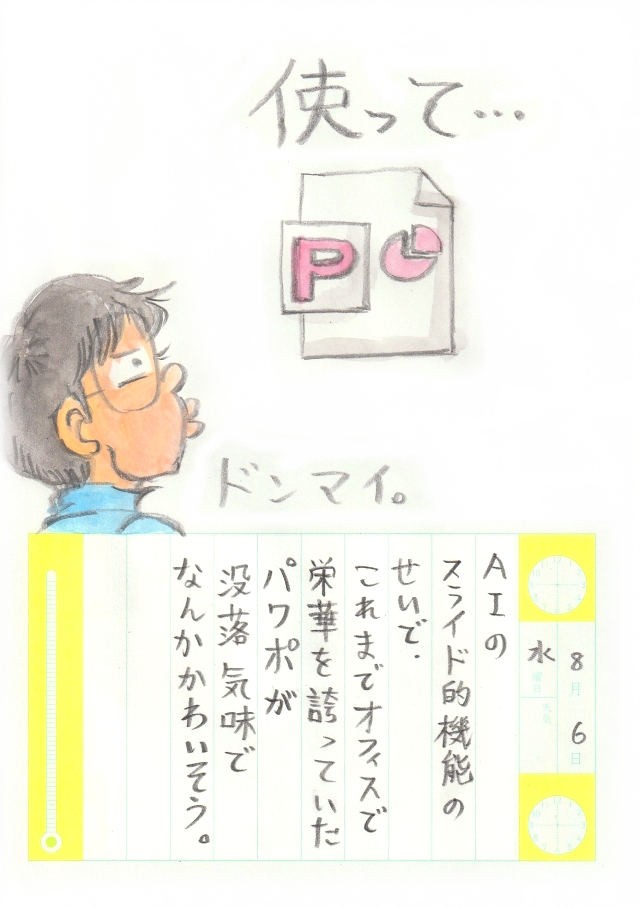 使って…
P
ドンマイ。
8月6日
水曜日
天気
AIの
スライド的機能の
せいで、
これまでオフィスで
栄華を誇っていた
パワポが
没落気味で
なんかかわいそう。